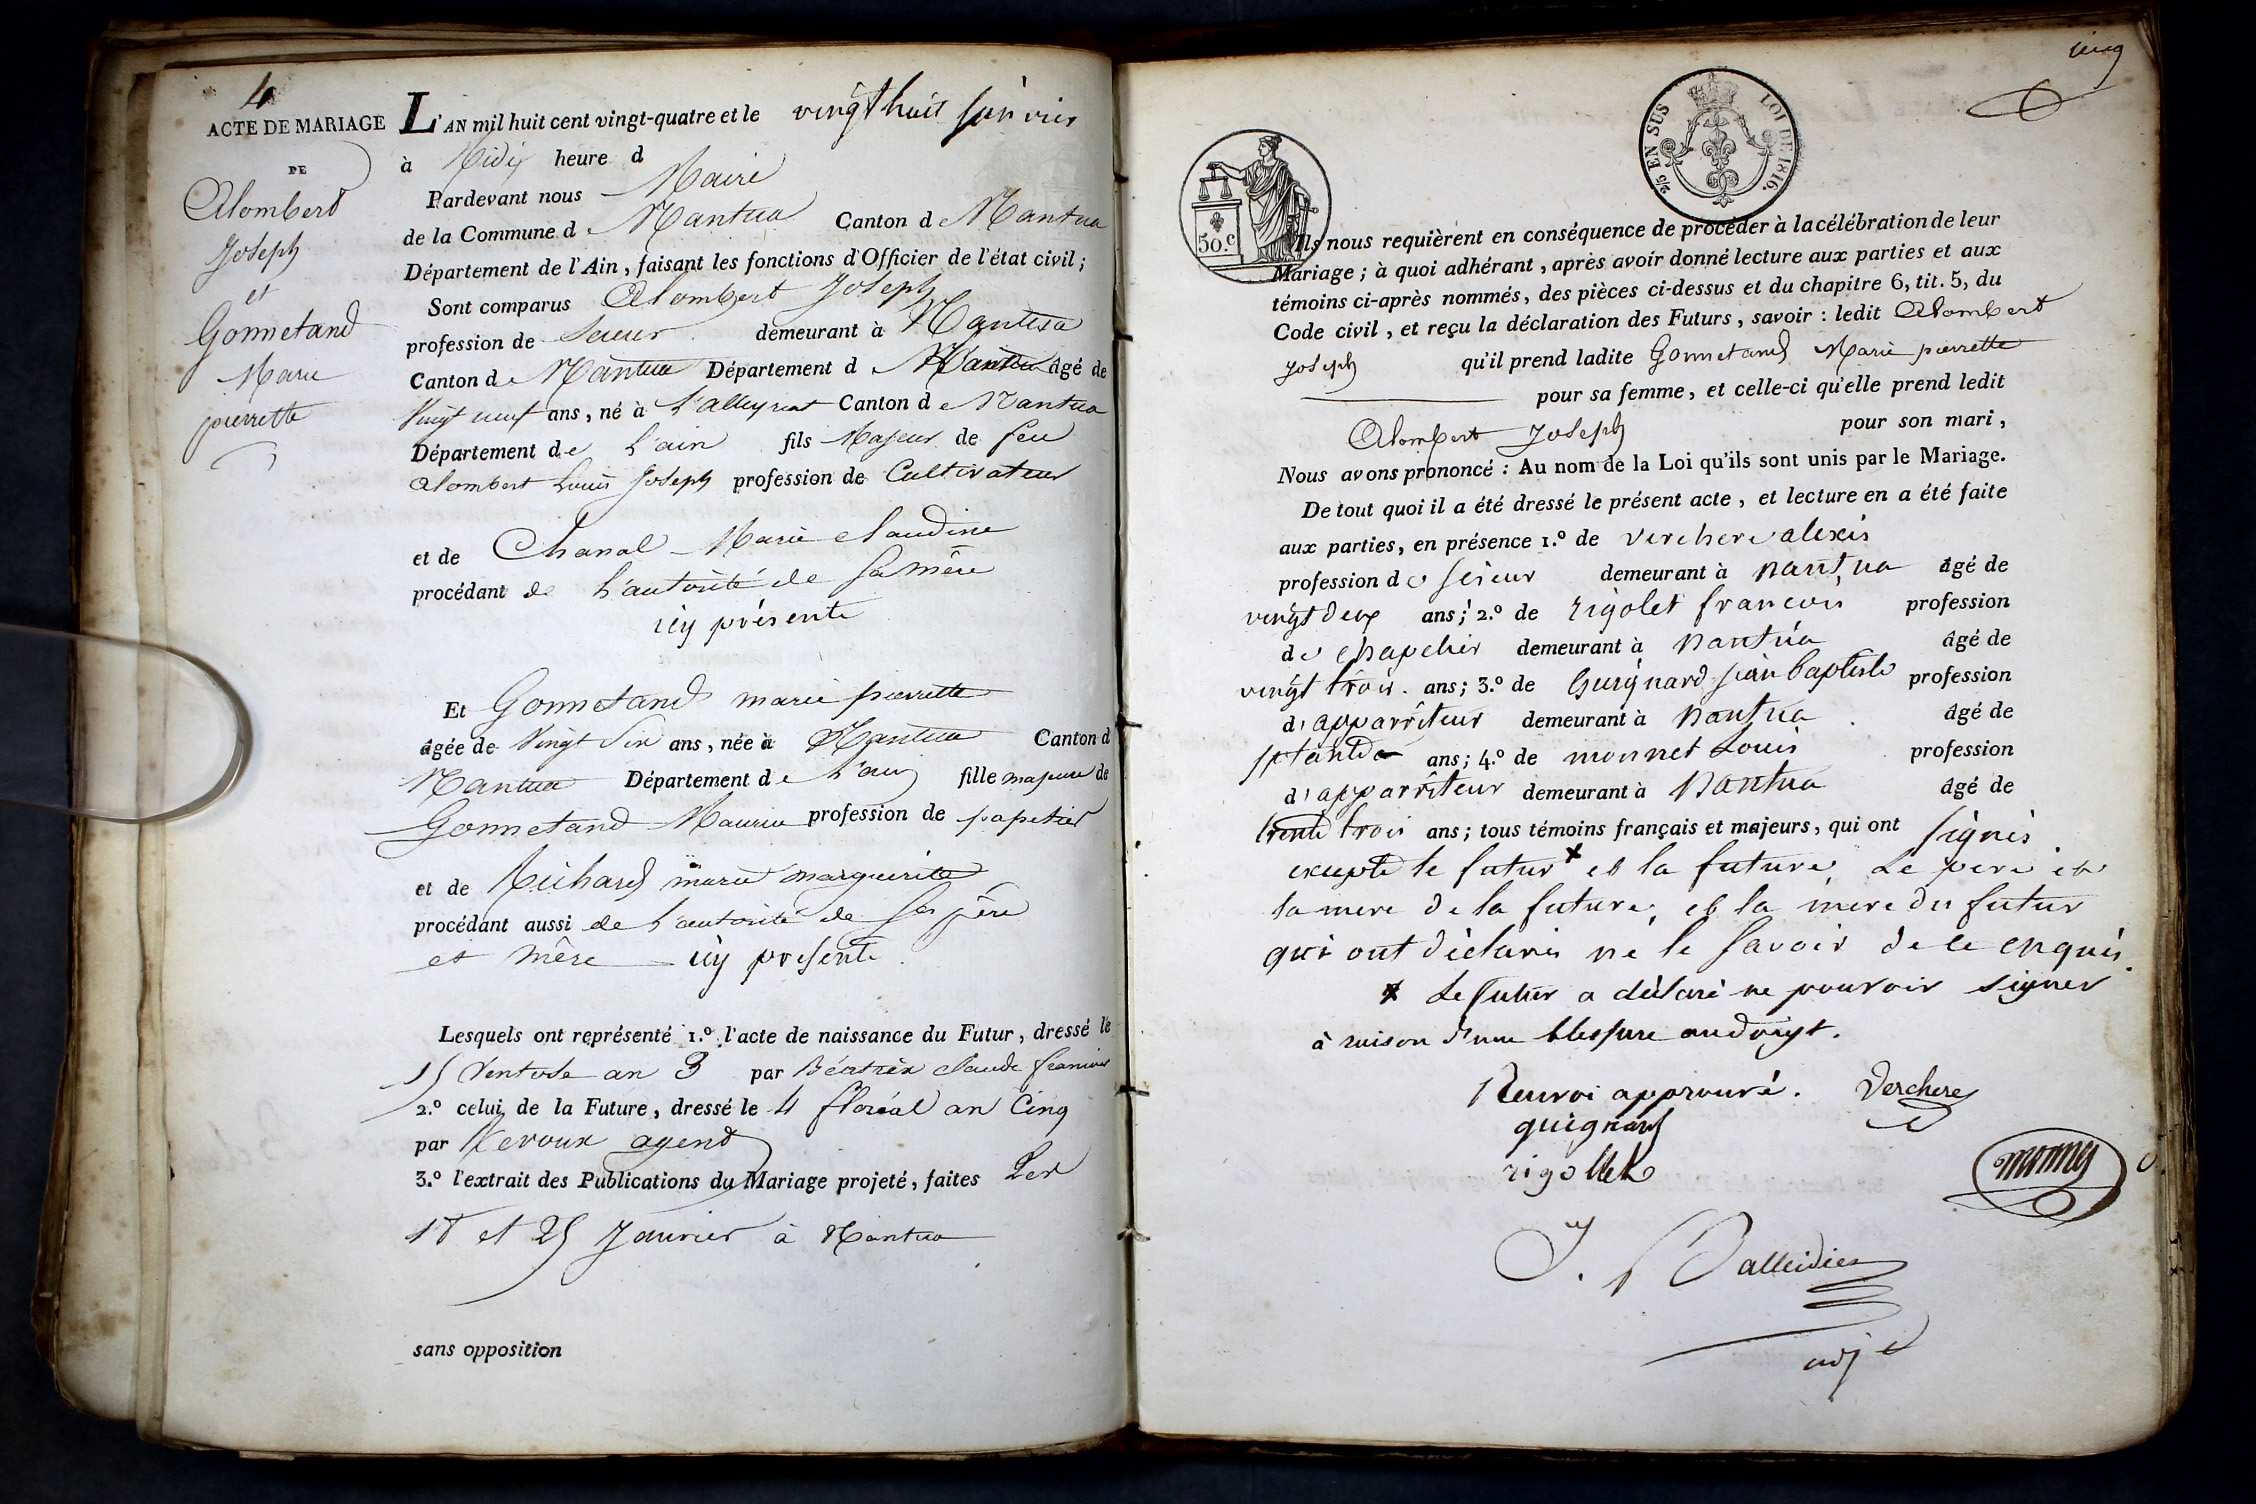 4
ACTE DE MARIAGE
DE
Alombert
Joseph
et
Gonnetand
Marie
pierrette
L'AN mil huit cent vingt-quatre et le vingt huit janvier
à Midi heure d
Pardevant nous Maire
de la Commune d Nantua Canton de Nantua
Département de l'Ain, faisant les fonctions d'Officier de l'état civil;
Sont comparus Alombert Joseph
profession de Scieur demeurant à Nantua
Canton de Nantua Département d Nantua âgé de
Vingt neuf ans, né à Lalleyriat Canton de Nantua
Département de L'ain fils Majeur de feu
Alombert Louis Joseph profession de Cultivateur
et de Chanal Marie Claudine
procédant de L'autorité de Sa mère
icy présente
Et Gonnetand marie pierrette
âgée de Vingt Six ans, née à Nantua Canton d
Nantua Département de L'ain fille majeure de
Gonnetand Maurice profession de papetier
et de Richard marie marguerite
procédant aussi de L'autorité de Ses père
et mère icy présente
Lesquels ont représenté 1.º l'acte de naissance du Futur, dressé le
15 Ventose an 3 par Béatrix Claude
2.º celui de la Future, dressé le 4 floréal an Cinq
par agend
3.º l'extrait des Publications du Mariage projeté, faites Les
18 et 25 Janvier à Nantua
sans opposition
cinq
2/5 EN SUS LOI DE 1816.
50.c
Ils nous requièrent en conséquence de procéder à la célébration de leur
Mariage; à quoi adhérant, après avoir donné lecture aux parties et aux
témoins ci-après nommés, des pièces ci-dessus et du chapitre 6, tit. 5, du
Code civil, et reçu la déclaration des Futurs, savoir: ledit Alombert
Joseph qu'il prend ladite Gonnetand Marie pierrette
pour sa femme, et celle-ci qu'elle prend ledit
Alombert Joseph pour son mari,
Nous avons prononcé: Au nom de la Loi qu'ils sont unis par le Mariage.
De tout quoi il a été dressé le présent acte, et lecture en a été faite
aux parties, en présence 1.º de Verchere alexis
profession de scieur demeurant à nantua âgé de
vingt deux ans; 2.º de rigolet francois profession
de chapelier demeurant à nantua âgé de
vingt trois ans; 3.º de Guignard jean baptiste profession
d'apparriteur demeurant à nantua âgé de
septante ans; 4.º de monnet Louis profession
d'apparriteur demeurant à nantua âgé de
trente trois ans; tous témoins français et majeurs, qui ont signés
excepté le futur x et la future, Le pere et
la mere de la future, et la mere du futur
qui ont déclarés ne le savoir de ce enquis.
x Le futur a déclaré ne pouvoir signer
à raison d'une blessure au doigt.
Renvoi approuvé. Verchere
guignard
rigollet
monnet
J. Balleidier
adj